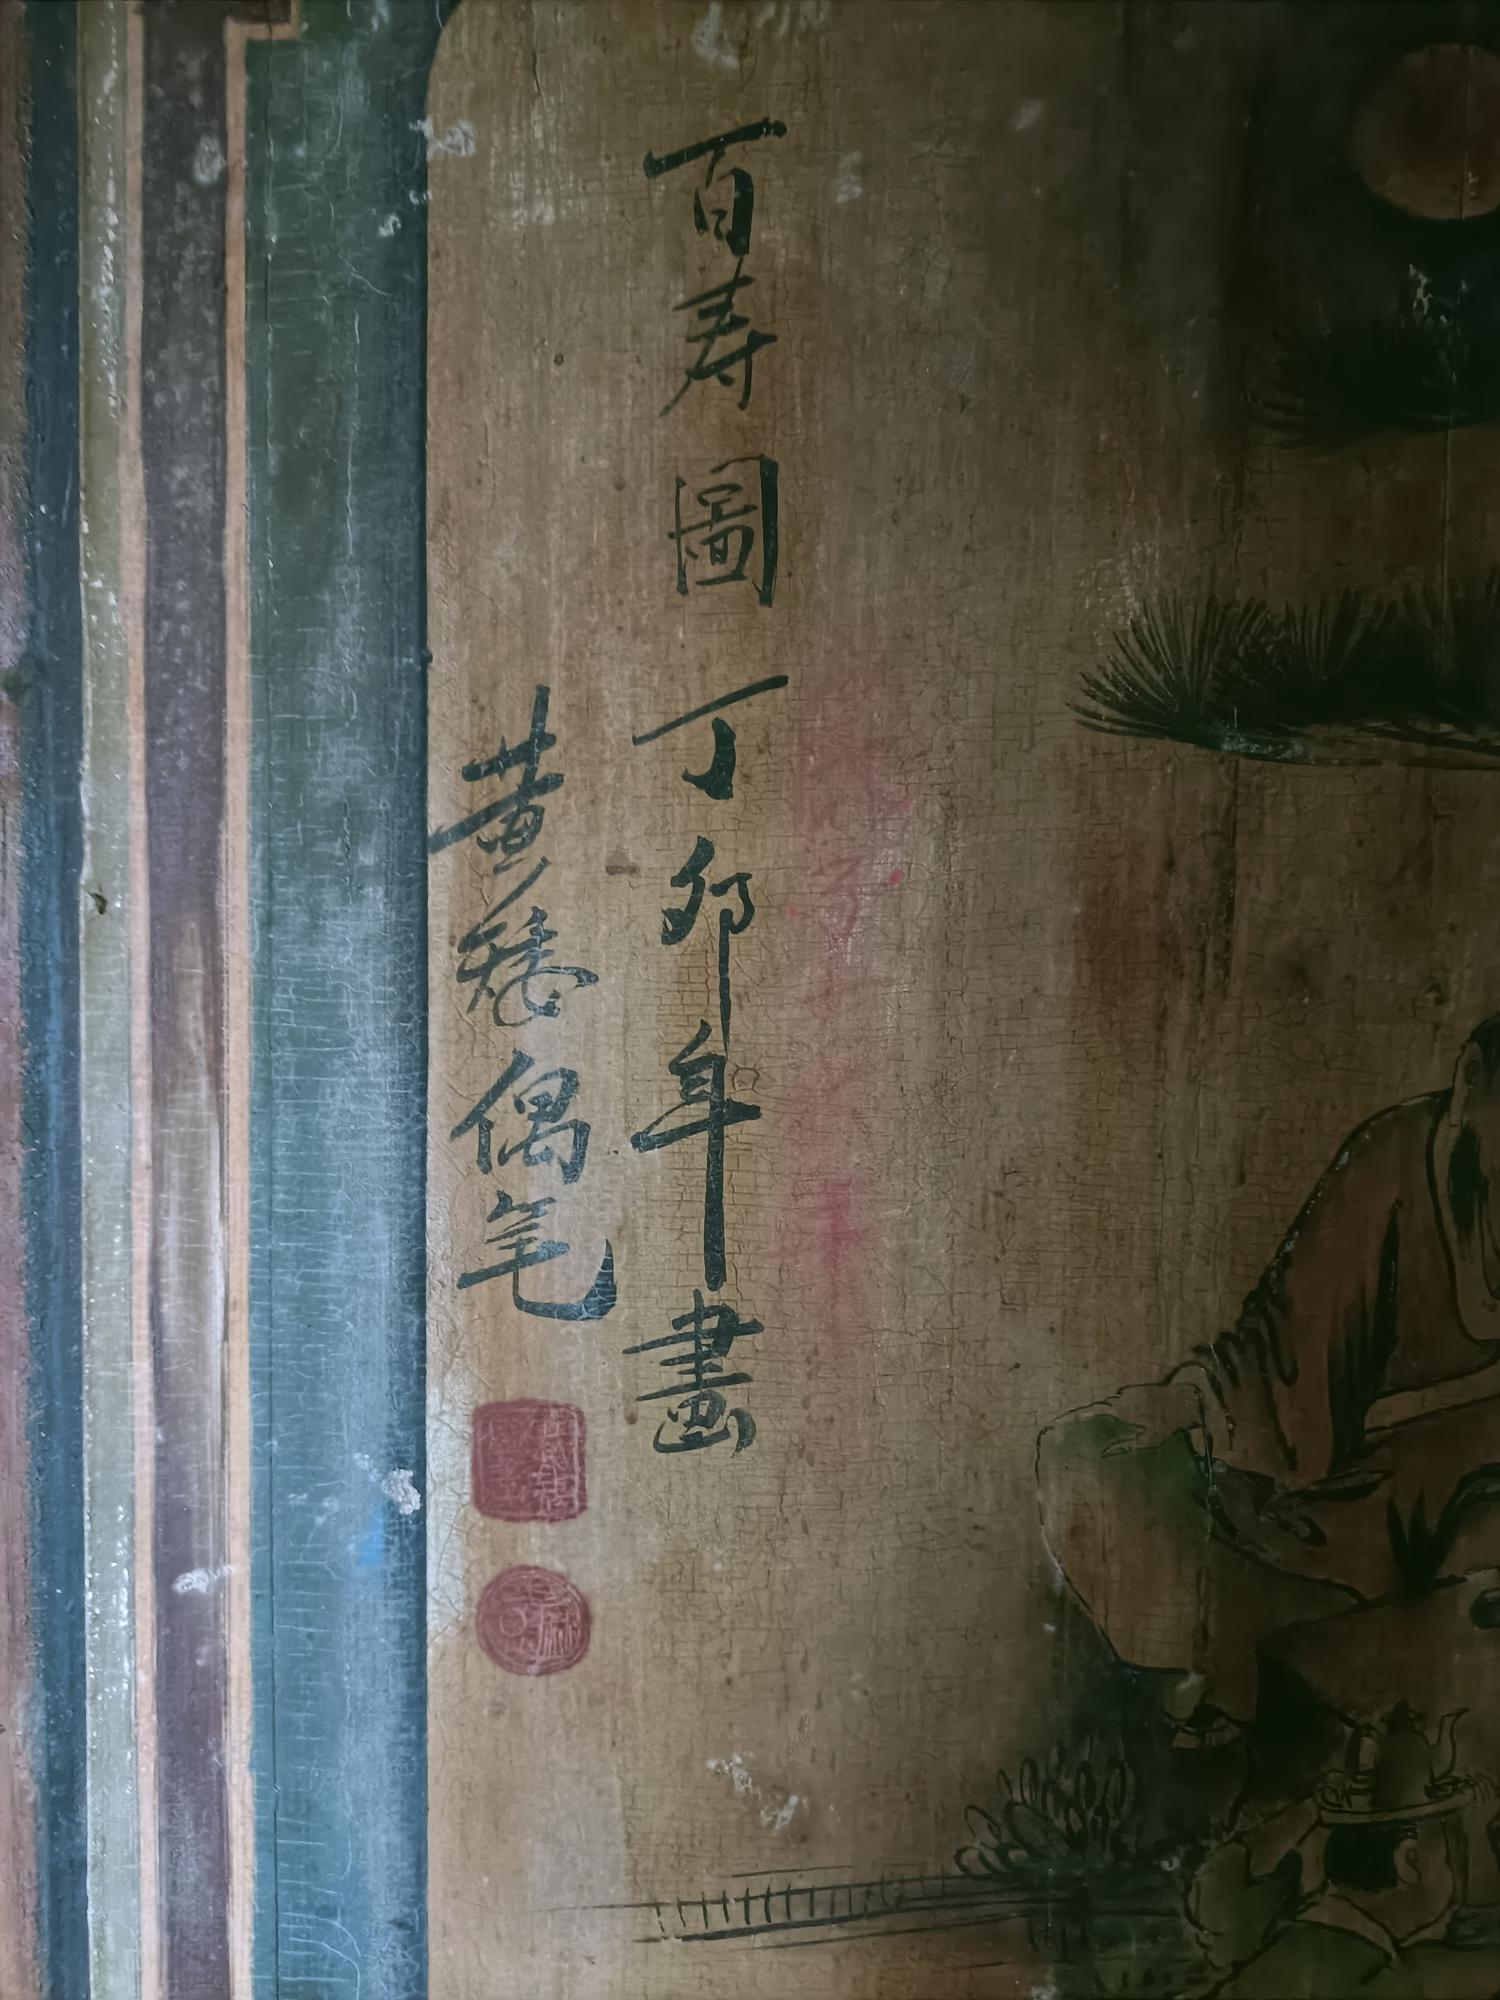 百寿圖丁卯年畫
黄矮偶笔